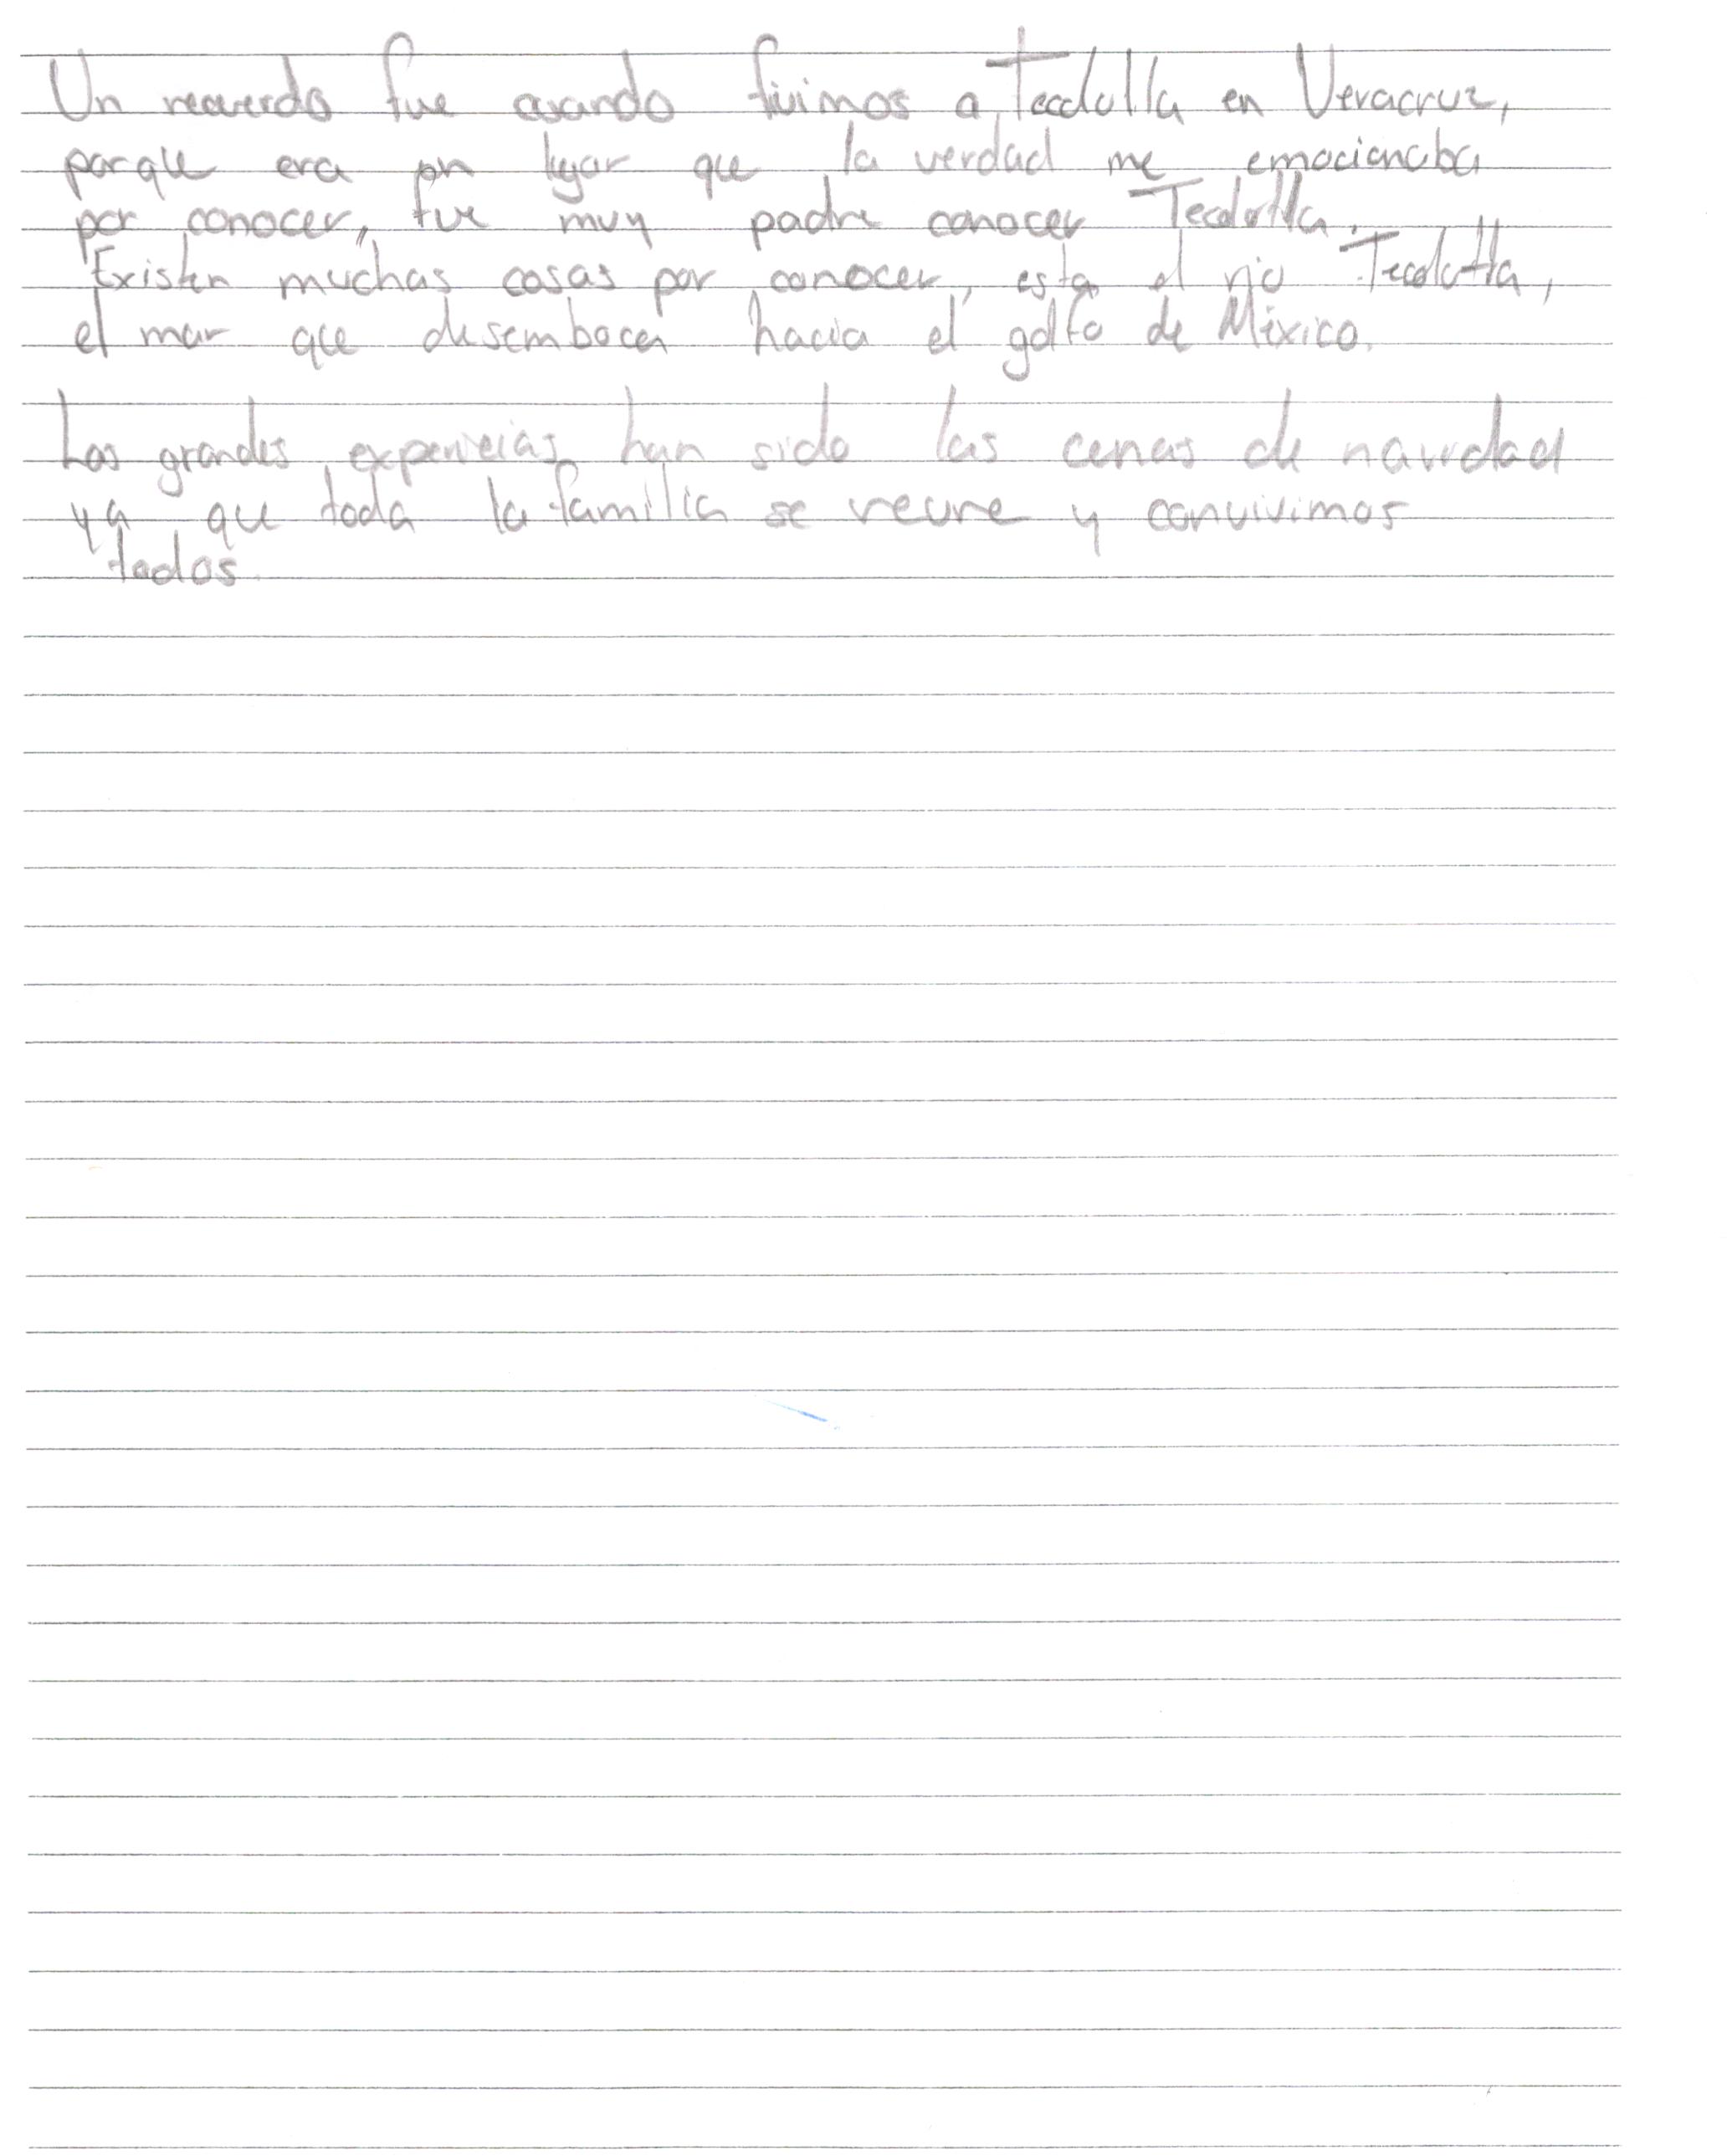 Un recuerdo fue cuando fuimos a Tecolutla en Veracruz,
porque era un lugar que la verdad me emocionaba
por conocer, fue muy padre conocer Tecolutla.
Existen muchas cosas por conocer, esta el rio Tecolutla,
el mar que desemboca hacia el golfo de México.
Las grandes experieias han sido las cenas de navidad
ya que toda la familia se reune y convivimos
todos.